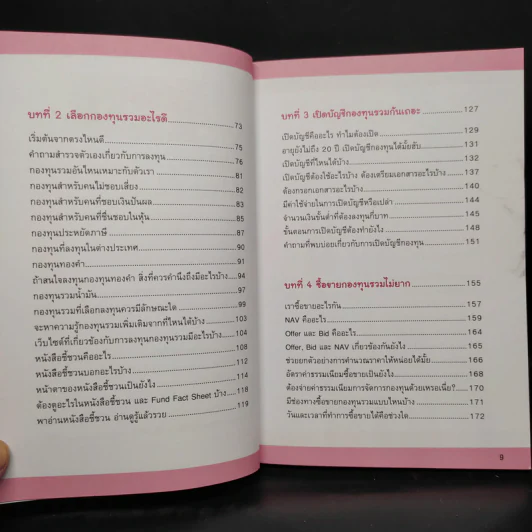 บทที่ 2 เลือกกองทุนรวมอะไรดี 73
เริ่มต้นจากตรงไหนดี 75
คำถามสำรวจตัวเองเกี่ยวกับการลงทุน 76
กองทุนรวมอันไหนเหมาะกับตัวเรา 81
กองทุนสำหรับคนไม่ชอบเสี่ยง 82
กองทุนสำหรับคนที่ชอบเงินปันผล 83
กองทุนสำหรับคนที่ชื่นชอบในหุ้น 85
กองทุนประหยัดภาษี 87
กองทุนที่ลงทุนในต่างประเทศ 90
กองทุนทองคำ 91
ถ้าสนใจลงทุนกองทุนทองคำ สิ่งที่ควรคำนึงถึงมีอะไรบ้าง 94
กองทุนรวมน้ำมัน 97
กองทุนรวมที่เลือกลงทุนควรมีลักษณะใด 99
จะหาความรู้กองทุนรวมเพิ่มเติมจากที่ไหนได้บ้าง 103
เว็บไซต์ที่เกี่ยวข้องกับการลงทุนกองทุนรวมมีอะไรบ้าง 104
หนังสือชี้ชวนคืออะไร 108
หนังสือชี้ชวนบอกอะไรบ้าง 112
หน้าตาของหนังสือชี้ชวนเป็นยังไง 114
ต้องดูอะไรในหนังสือชี้ชวน และ Fund Fact Sheet บ้าง 118
พาอ่านหนังสือชี้ชวน อ่านดูรู้แล้วรวย 119
บทที่ 3 เปิดบัญชีกองทุนรวมกันเถอะ 127
เปิดบัญชีคืออะไร ทำไมต้องเปิด 129
อายุยังไม่ถึง 20 ปี เปิดบัญชีกองทุนได้มั้ยฮับ 131
เปิดบัญชีที่ไหนได้บ้าง 132
เปิดบัญชีต้องใช้อะไรบ้าง ต้องเตรียมเอกสารอะไรบ้าง 137
ต้องกรอกเอกสารอะไรบ้าง 140
มีค่าใช้จ่ายในการเปิดบัญชีหรือเปล่า 144
จำนวนเงินขั้นต่ำที่ต้องลงทุนกี่บาท 145
ขั้นตอนการเปิดบัญชีต้องทำยังไง 148
คำถามที่พบบ่อยเกี่ยวกับการเปิดบัญชีกองทุน 151
บทที่ 4 ซื้อขายกองทุนรวมไม่ยาก 155
เราซื้อขายอะไรกัน 157
NAV คืออะไร 159
Offer และ Bid คืออะไร 164
Offer, Bid และ NAV เกี่ยวข้องกันยังไง 165
ช่วยยกตัวอย่างการคำนวณราคาให้หน่อยได้มั้ย 166
อัตราค่าธรรมเนียมซื้อขายเป็นยังไง 168
ต้องจ่ายค่าธรรมเนียมการจัดการกองทุนด้วยเหรอเนี่ย? 170
มีช่องทางซื้อขายกองทุนรวมแบบไหนบ้าง 171
วันและเวลาที่ทำการซื้อขายได้คือช่วงใด 172
9